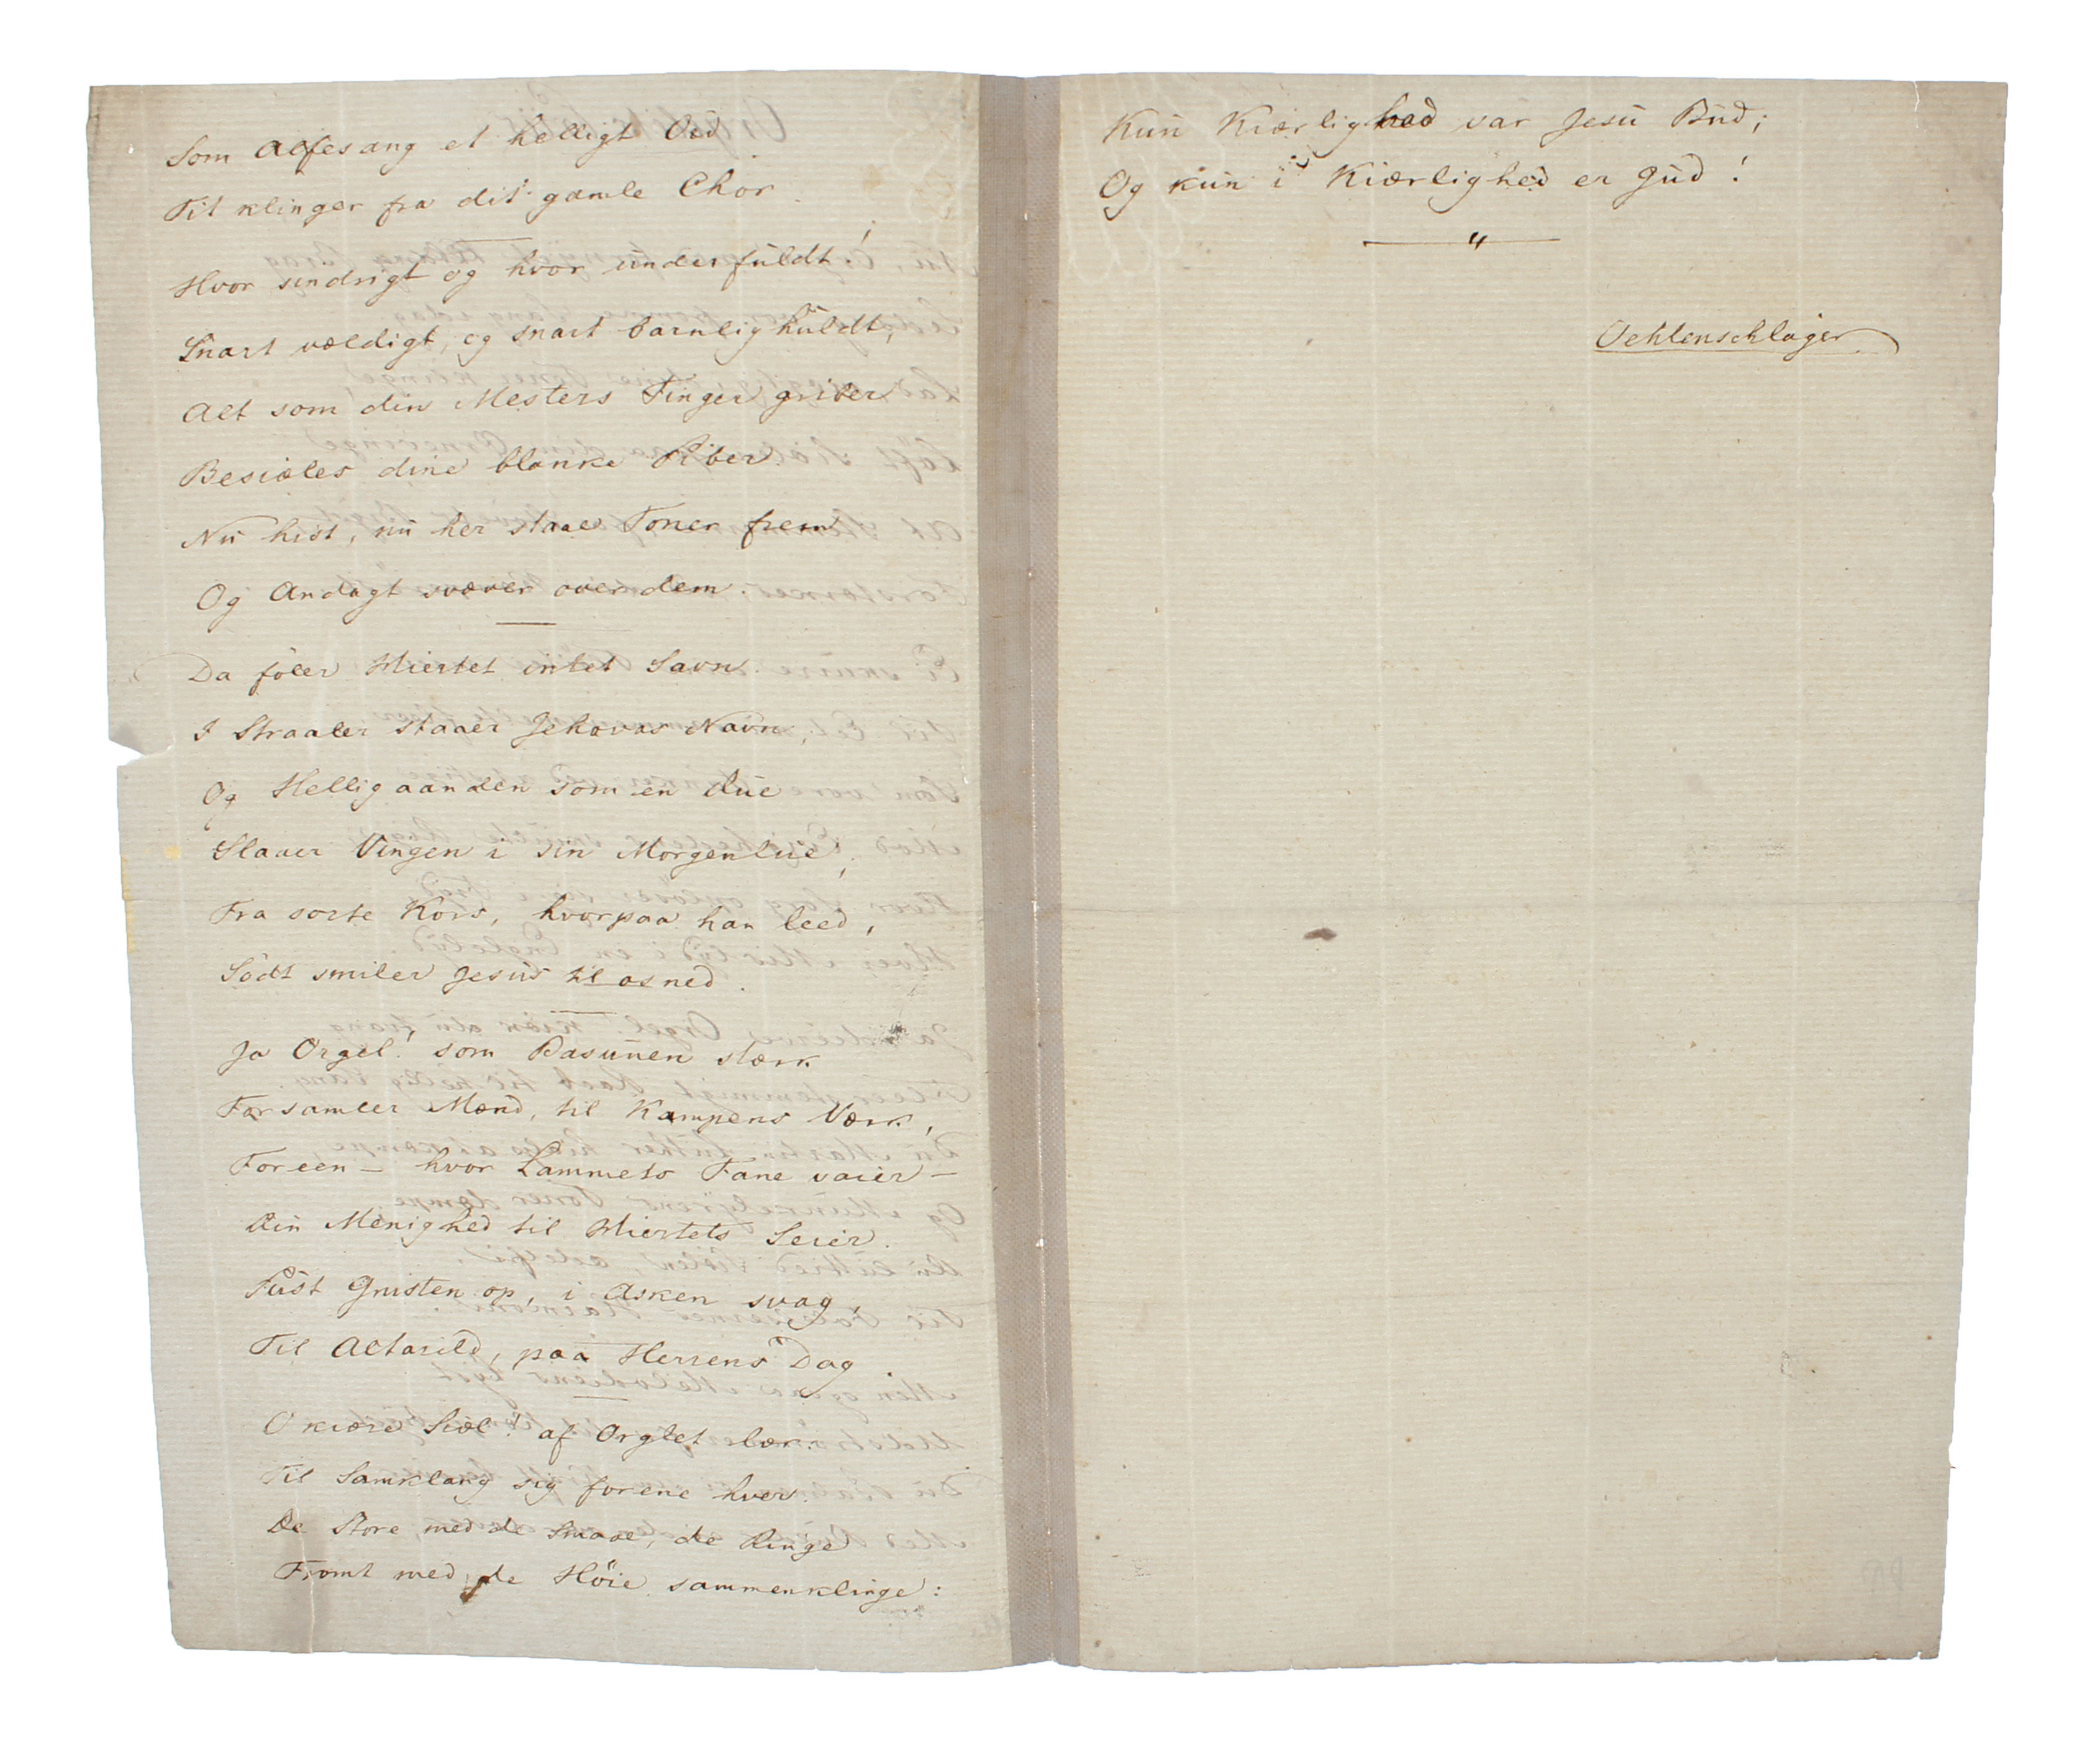 Som Alfesang et helligt Ord
Til klinger fra dit gamle Chor.
Hvor sindrigt og hvor underfuldt!
Snart vældigt, og snart barnlig huldt,
Alt som din Mesters Finger griber
Besiæles dine blanke Piber.
Nu hist, nu her staae Toner frem
Og Andagt svæver over dem.
Da föler Hiertet intet Savn.
I Straaler staaer Jehovas Navn,
Og Helligaanden som en due
Slaaer Vingen i sin Morgenlue,
Fra sorte Kors, hvorpaa han leed,
Södt smiler Jesus til os ned.
Ja Orgel! som Basunen stærk
Forsamler Mænd, til Kampens Værk,
Foreen – hvor Lammets Fane vaier –
Din Menighed til Hiertets Seier.
Pust Gnisten op, i Asken svag,
Til Altarild, paa Herrens Dag.
O kiære Siæl! af Orglet lær:
Til Samklang sig forene hver.
De Store med de Smaae, de Ringe
Fromt med de Höie sammenklinge:
Kun Kiærlighed var Jesu Bud;
Og kun i Kiærlighed er Gud!
Oehlenschläger